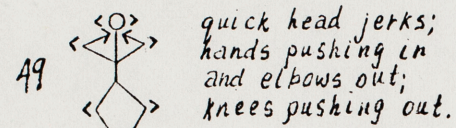 49
quick head jerks;
hands pushing in
and elbows out;
knees pushing out.